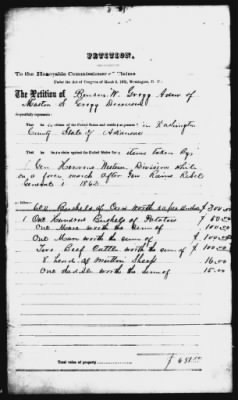 PETITION.
To the Honorable Commissioners of Claims
Under the Act of Congress of March 3, 1871, Washington, D. C.
The Petition of Benson W. Gregg Admr of
Maston S. Gregg Deceased
respectfully represents:
That is a citizen of the United States and resides at present in Washington
County State of Arkansas
That he has a claim against the United States for items taken by
Gen Herrons Western Division while
on a force march after Gen Rains Rebel
General in 1862
600 Bushels of Corn worth 50 per Bushel $ 300.00
1 One hundred Bushels of Potatoes $ 50.00
One Horse worth the sum of 100.00
One Mare worth the sum of $ 100.00
Two Beef Cattle worth the sum of $ 100.00
8 head of Mutton Sheep 16.00
One saddle worth the sum of 15.00
Total value of property